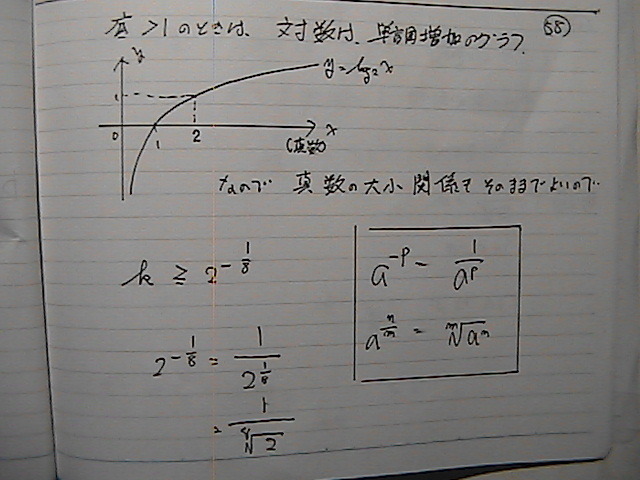 底 >1 のときは、 対数は、単調増加のグラフ. 58
y
y=log₂x
1
0 1 2 x
(真数)
なので 真数の大小関係もそのままでよいので
k ≧ 2^{-1/8}
a^{-p} = 1/a^p
a^{n/m} = ᵐ√aⁿ
2^{-1/8} = 1/2^{1/8}
= 1/⁸√2